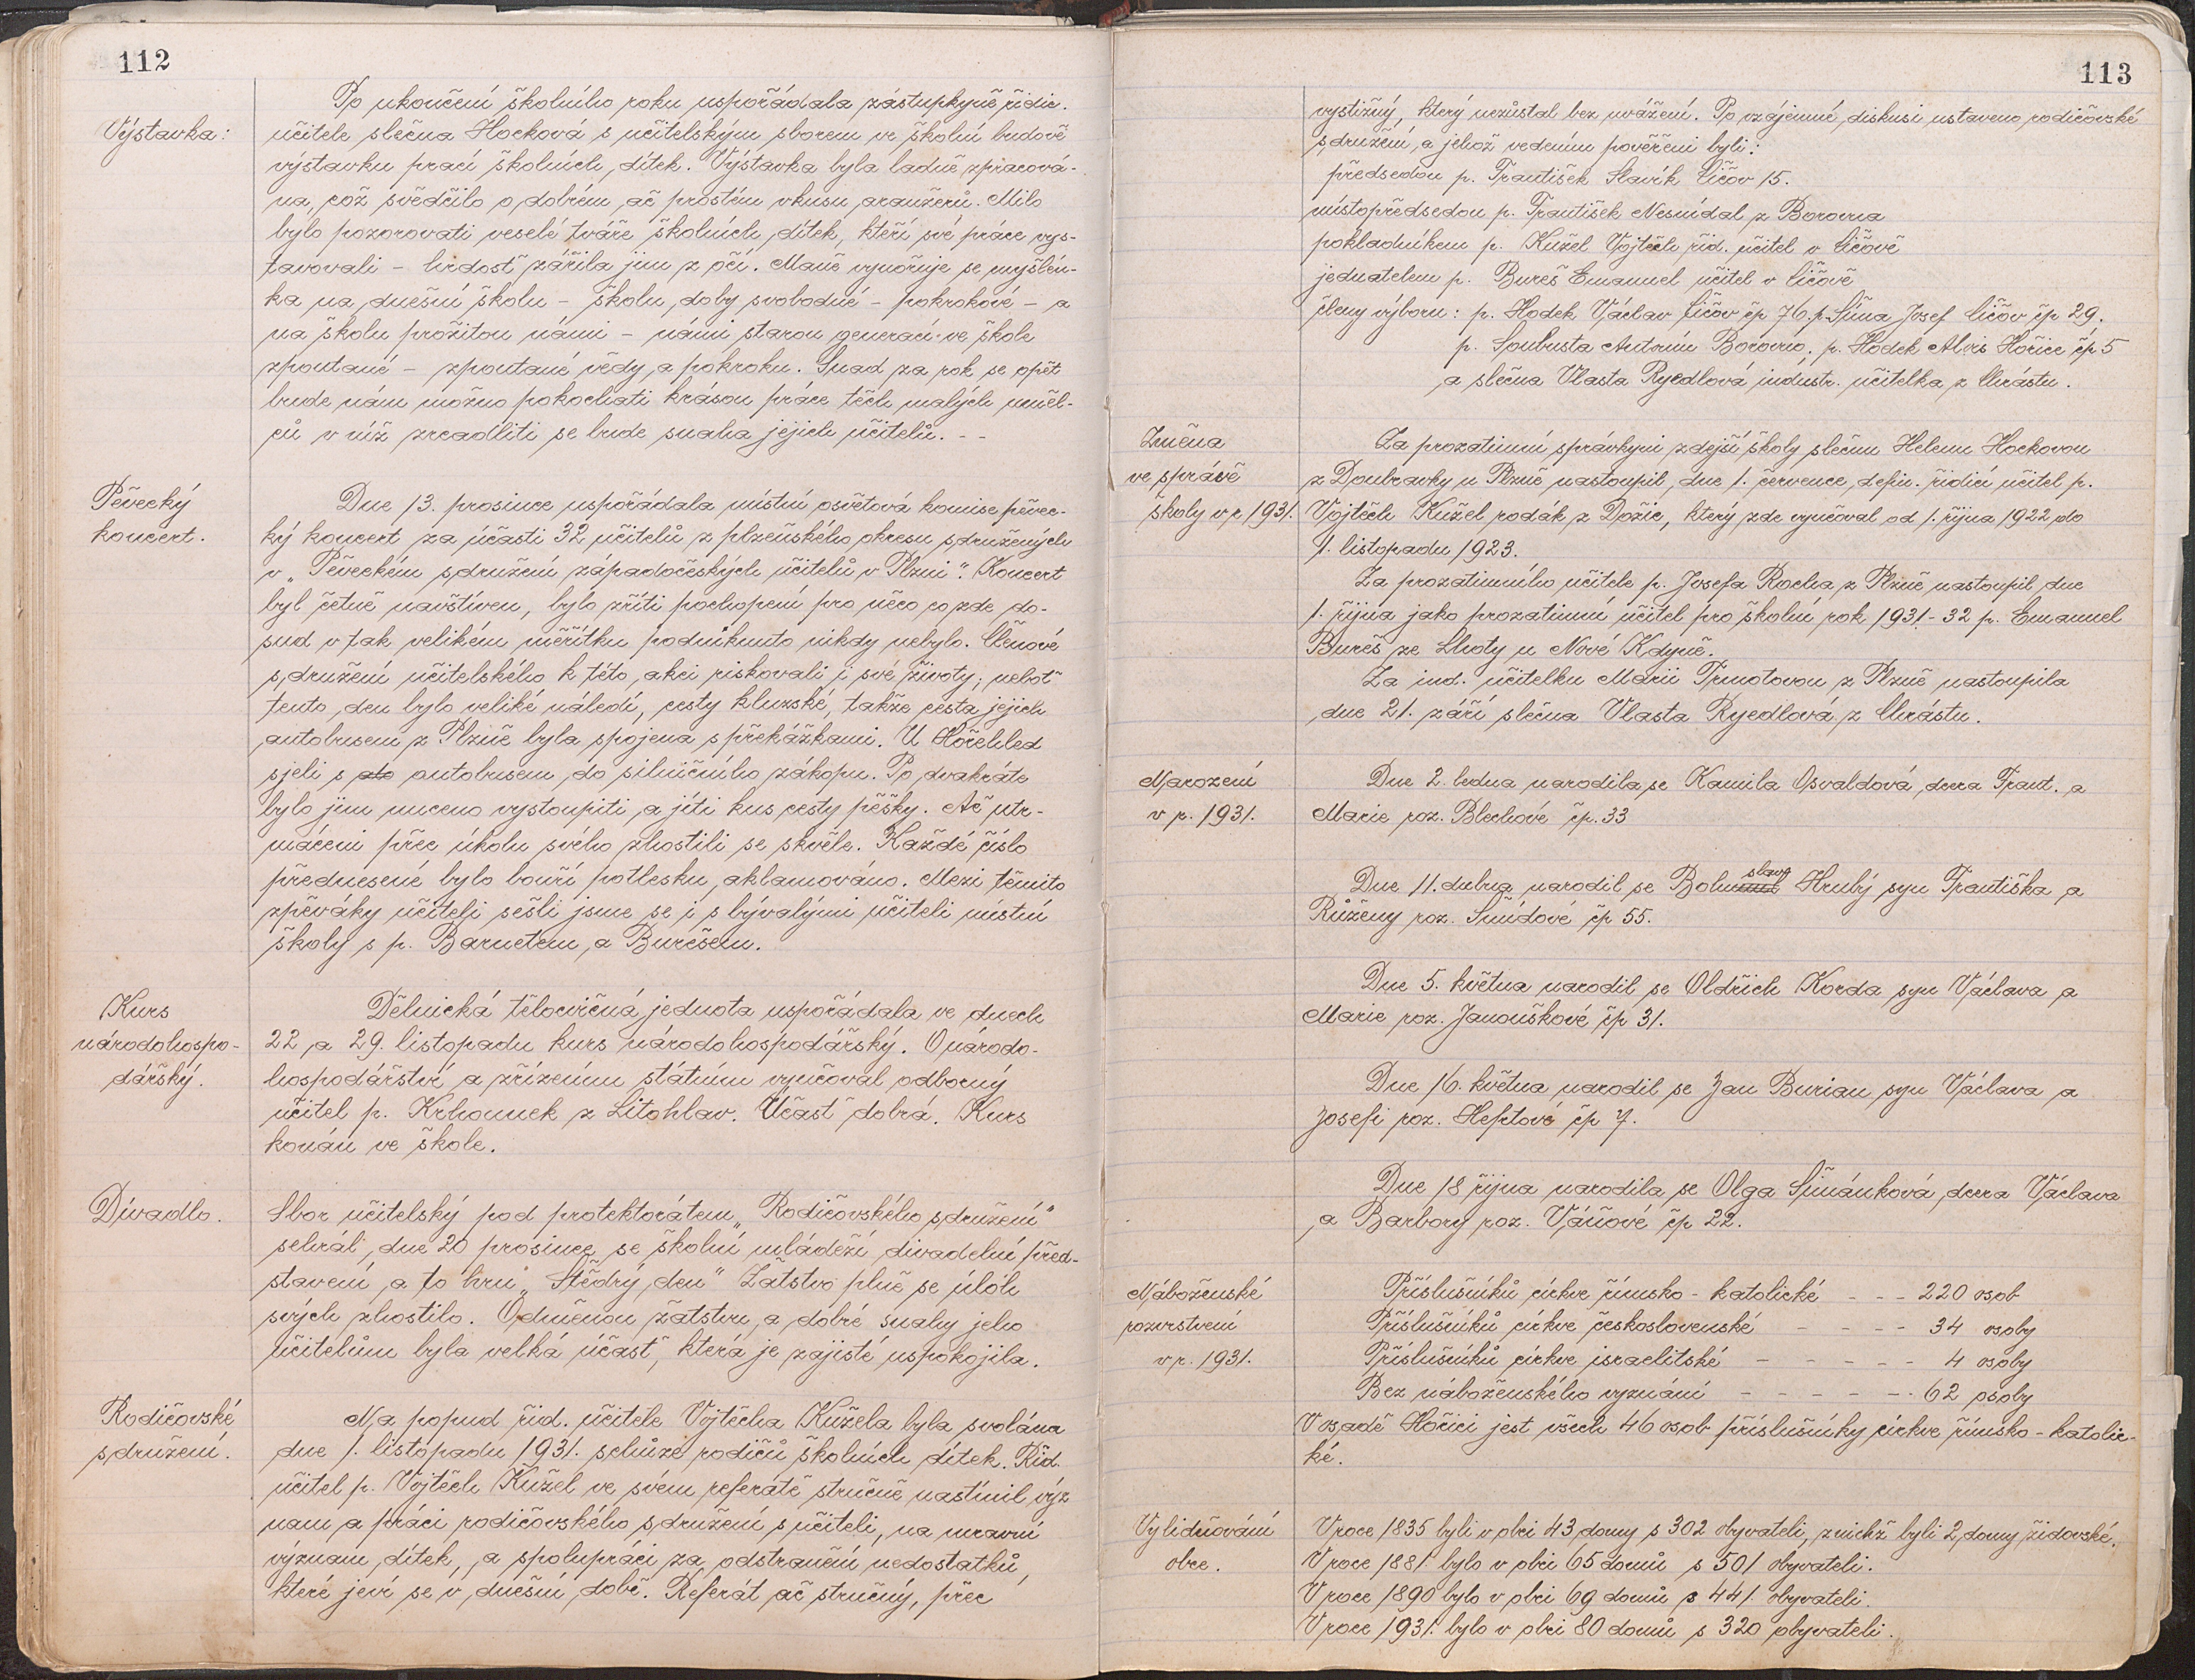 112
Po ukončení školního roku uspořádala zástupkyně řidic.
Výstavka: učitele slečna Hocková s učitelským sborem ve školní budově
výstavku prací školních dítek. Výstavka byla ladně zpracová-
na, což svědčilo o dobrém, ač prostém vkusu aranžerů. Milo
bylo pozorovati veselé tváře školních dítek, kteří své práce vys-
tavovali - hrdosť zářila jim z očí. Maně vynořuje se myšlén-
ka na dnešní školu - školu doby svobodné - pokrokové - a
na školu prožitou námi - námi starou generací ve škole
zpoutané - zpoutané vědy a pokroku. Snad za rok se opět
bude nám možno pokochati krásou práce těch malých uměl-
ců v níž zreadliti se bude snaha jejich učitelů. - -
Pěvecký Dne 13. prosince uspořádala místní osvětová komise pěvec-
koncert. ký koncert za účasti 32 učitelů z plzeňského okresu sdružených
v „Pěveckém sdružení západočeských učitelů v Plzni". Koncert
byl četně navštíven, bylo zříti pochopení pro něco co zde do-
sud v tak velikém měřítku podniknuto nikdy nebylo. Členové
sdružení učitelského k této akci riskovali i své životy; neboť
tento den bylo veliké náledí, cesty kluzské, takže cesta jejich
autobusem z Plzně byla spojena s překážkami. U Hořehled
sjeli s do autobusem do silničního zákopu. Po dvakráte
bylo jim nuceno vystoupiti a jíti kus cesty pěšky. Ač utr-
máceni přec úkolu svého zhostili se skvěle. Každé číslo
přednesené bylo bouří potlesku aklamováno. Mezi těmito
zpěváky učiteli sešli jsme se i s bývalými učiteli místní
školy s p. Barnetem a Burešem.
Kurs Dělnická tělocvičná jednota uspořádala ve dnech
národohospo- 22 a 29. listopadu kurs národohospodářský. O národo-
dářský. hospodářství a zřízením státním vyučoval odborný
učitel p. Krhounek z Litohlav. Účasť dobrá. Kurs
konán ve škole.
Dívadlo. Sbor učitelský pod protektorátem „Rodičovského sdružení"
sehrál dne 20 prosince se školní mládeží divadelní před-
stavení a to hru „Štědrý den" Žatstvo plně se úloh
svých zhostilo. Odměnou žatstvu a dobré snahy jeho
učitelům byla velká účasť, která je zajisté uspokojila.
Rodičovské Na popud řid. učitele Vojtěcha Kužela byla svolána
sdružení. dne 1. listopadu 1931. schůze rodičů školních dítek. Řid.
učitel p. Vojtěch Kužel ve svém referátě stručně nastínil výz
nam a práci rodičovského sdružení s učiteli, na mravní
význam dítek, a spolupráci za odstranění nedostatků,
které jeví se v dnešní době. Referát ač stručný, přec
113
vystižný, který nezůstal bez uvážení. Po vzájemné diskusi ustaveno rodičovské
sdružení, a jehož vedením pověřeni byli:
předsedou p. František Slavík Ličov 15.
místopředsedou p. František Nesnídal z Borovna
pokladníkem p. Kužel Vojtěch řid. učitel v Ličově
jednatelem p. Bureš Emanuel učitel v Ličově
členy výboru: p. Hodek Václav Ličov čp 76. p. Šůna Josef Ličov čp 29.
p. Soubusta Antonín Borovno, p. Hodek Alois Hořice čp 5
a slečna Vlasta Ryedlová industr. učitelka z Chrástu.
Změna Za prozatimní správkyni zdejší školy slečnu Helenu Hockovou
ve správě z Doubravky u Plzně nastoupil dne 1. července defin. řidící učitel p.
školy v r. 1931. Vojtěch Kužel rodák z Dožic, který zde vyučoval od 1. října 1922 do
1. listopadu 1923.
Za prozatimního učitele p. Josefa Rocha z Plzně nastoupil dne
1. října jako prozatimní učitel pro školní rok 1931-32 p. Emanuel
Bureš ze Lhoty u Nové Kdyně.
Za ind. učitelku Marii Tůmotovou z Plzně nastoupila
dne 21. září slečna Vlasta Ryedlová z Chrástu.
Narození Dne 2. ledna narodila se Kamila Osvaldová dcera Frant. a
v r. 1931. Marie roz. Blechové čp. 33
Dne 11. dubna narodil se Bohuslav Hrubý syn Františka a
Růženy roz. Šmídové čp 55.
Dne 5. května narodil se Oldřich Korda syn Václava a
Marie roz. Janouškové čp 31.
Dne 16. května narodil se Jan Burian syn Václava a
Josefi roz. Heptové čp 7.
Dne 18 října narodila se Olga Šimánková dcera Václava
a Barbory roz. Váňové čp 22.
Náboženské Příslušníků církve římsko-katolické - - - 220 osob
rozvrstvení Příslušníků církve československé - - - - 34 osoby
v r. 1931. Příslušníků církve israelitské - - - - - 4 osoby
Bez náboženského vyznání - - - - - - 62 osoby
V osadě Hořici jest všech 46 osob příslušníky církve římsko-katolic-
ké.
Vylidňování V roce 1835 byli v obci 43 domy s 302 obyvateli, z nichž byli 2 domy židovské.
obce. V roce 1881 bylo v obci 65 domů s 501 obyvateli.
V roce 1890 bylo v obci 69 domů s 441 obyvateli.
V roce 1931. bylo v obci 80 domů s 320 obyvateli.